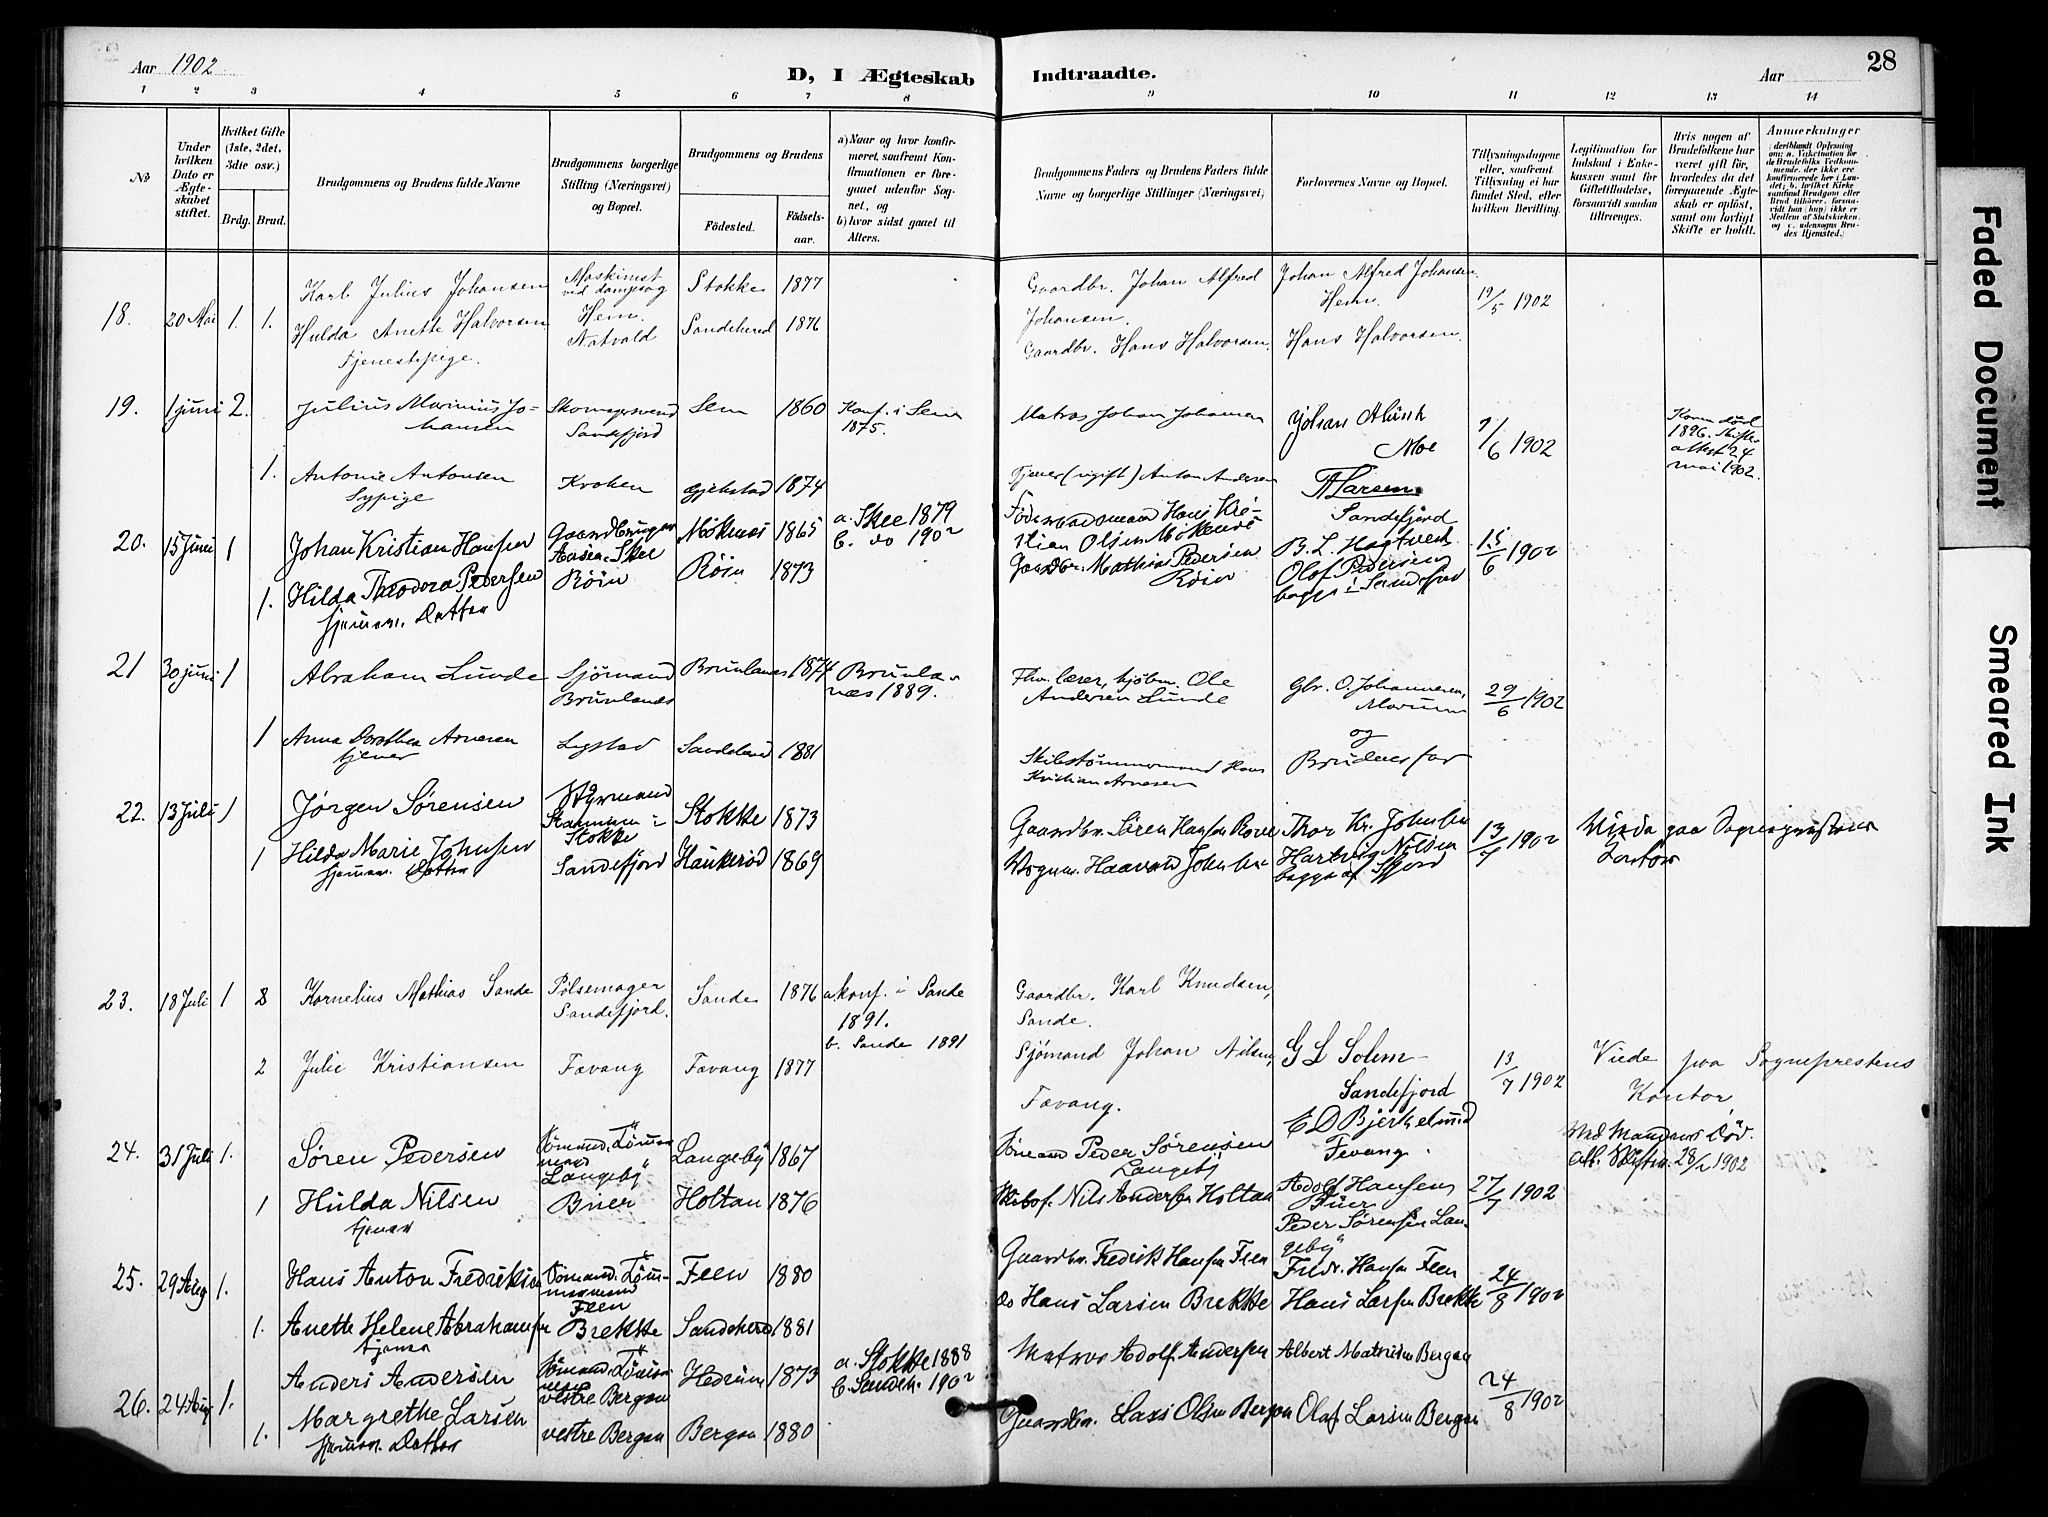 Aar 1902
D, I Ægteskab
Indtraadte.
Aar
28
1 2 3 4 5 6 7 8 9 10 11 12 13 14
No
Under hvilken Dato er Ægteskabet stiftet.
Hvilket Gifte (1ste, 2det, 3die osv.)
Brdg. Brud.
Brudgommens og Brudens fulde Navne
Brudgommens borgerlige Stilling (Næringsvei) og Bopæl.
Brudgommens og Brudens
Födested. Födselsaar.
a) Naar og hvor konfirmeret, saafremt Konfirmationen er foregaaet udenfor Sognet, og
b) hvor sidst gaaet til Alters.
Brudgommens Faders og Brudens Faders fulde Navne og borgerlige Stillinger (Næringsvei)
Forlovernes Navne og Bopæl.
Tillysningsdagene eller, saafremt Tillysning ei har fundet Sted, efter hvilken Bevilling.
Legitimation for Indskud i Enkekassen samt for Giftetilladelse, forsaavidt saadan tiltrænges.
Hvis nogen af Brudefolkene har været gift för, hvorledes da det foregaaende Ægteskab er oplöst, samt om lovligt Skifte er holdt.
Anmerkninger
18. 20 Mai 1. 1. Karl Julius Johansen Maskinist ved dampsag Hem. Stokke 1877 Gaardbr. Johan Alfred Johansen. Johan Alfred Johansen Hem. 19/5 1902
Hulda Anette Halvorsen Tjenestepige. Natvald Sandeherred 1876 Gaardbr. Hans Halvorsen. Hans Halvorsen.
19. 1 juni 2. Julius Marinius Johansen Skomagersvend Sandefjord Sem 1860 Konf. i Sem 1875. Matros Johan Johannesen Johan Munk Moe 1/6 1902 Konen död 1896. Skifteattest 24 mai 1902.
1. Antonie Antonsen Sypige Kroken 1874 Tjener (ugift) Anton Andersen A Larsen. Sandefjord
20. 15 Juni 1 Johan Kristian Hansen Gaardbruger Aasen. Skee Möknes 1865 a. Skee 1879 b. do 1902 Föderaadsmand Hans Kristian Olsen Möknes B. L. Hogtvedt 15/6 1902
1. Hilda Theodora Pedersen hjemmev. Datter Röin Röin 1873 Gaardbr. Mathias Pedersen Röin Olaf Pedersen begge i Sandefjord
21 30 juni 1 Abraham Lunde Sjömand Brunlanæs Brunlanæs 1874 Brunlanæs 1889. Fhv. lærer, kjöbm. Ole Andersen Lunde Gbr. O. Johannesen, Marum 29/6 1902
1 Anna Dorothea Arnesen tjener Lystad Sandeherred 1881 Skibstömmermand Hans Kristian Arnesen og Brudens far
22. 13 Juli 1 Jörgen Sörensen Styrmand i Stokke Stokke 1873 Gaardbr. Sören Hansen Rove Thor Kr. Johnsen 13/7 1902 Viede paa Sogneprestens Kontor
1 Hilda Marie Johnsen hjemmev. Datter Sandefjord Haukeröd 1869 Vognm. Haavard Johnsen Hartvig Nilsen begge af Sfjord
23. 18 Juli 1 Kornelius Mathias Sande Pölsemager Sandefjord. Sande 1876 a. konf. i Sande 1891. b. Sande 1891 Gaardbr. Karl Knudsen, Sande. G L Solum Sandefjord 13/7 1902 Viede paa Sogneprestens Kontor
2 Julie Kristiansen Fævang Fævang 1877 Sjömand Johan Nilsen, Fævang. E D Bjerkelund Fevang.
24. 31 Juli 1. Sören Pedersen Sömand. Tömmermand Langeby Langeby 1867 Sömand Peder Sörensen Langeby Adolf Hansen 27/7 1902 28/ 1902
1 Hulda Nilsen tjener Buer Holtan 1876 Skibsf. Nils Andersen Holtan Peder Sörensen Langeby
25. 29 Aug 1. Hans Anton Fredriksen Sömand. Tömmermand Feen Feen 1880 Gaardbr. Fredrik Hansen Feen Fredr. Hansen Feen 24/8 1902
1. Anette Helene Abrahamsen tjener Brekke Sandeherred 1881 do Hans Larsen Brekke Hans Larsen Brekke
26. 24 Aug. 1. Anders Andersen Sömand. Tömmermand vestre Bergan Hedrum 1873 a. Stokke 1888 b. Sandeh. 1902 Matros Adolf Andersen Albert Mathisen Bergan 24/8 1902
1. Margrethe Larsen hjemmev. Datter vestre Bergan Bergan 1880 Gaardbr. Lars Olsen Bergan Olaf Larsen Bergan
Faded Document
Smeared Ink